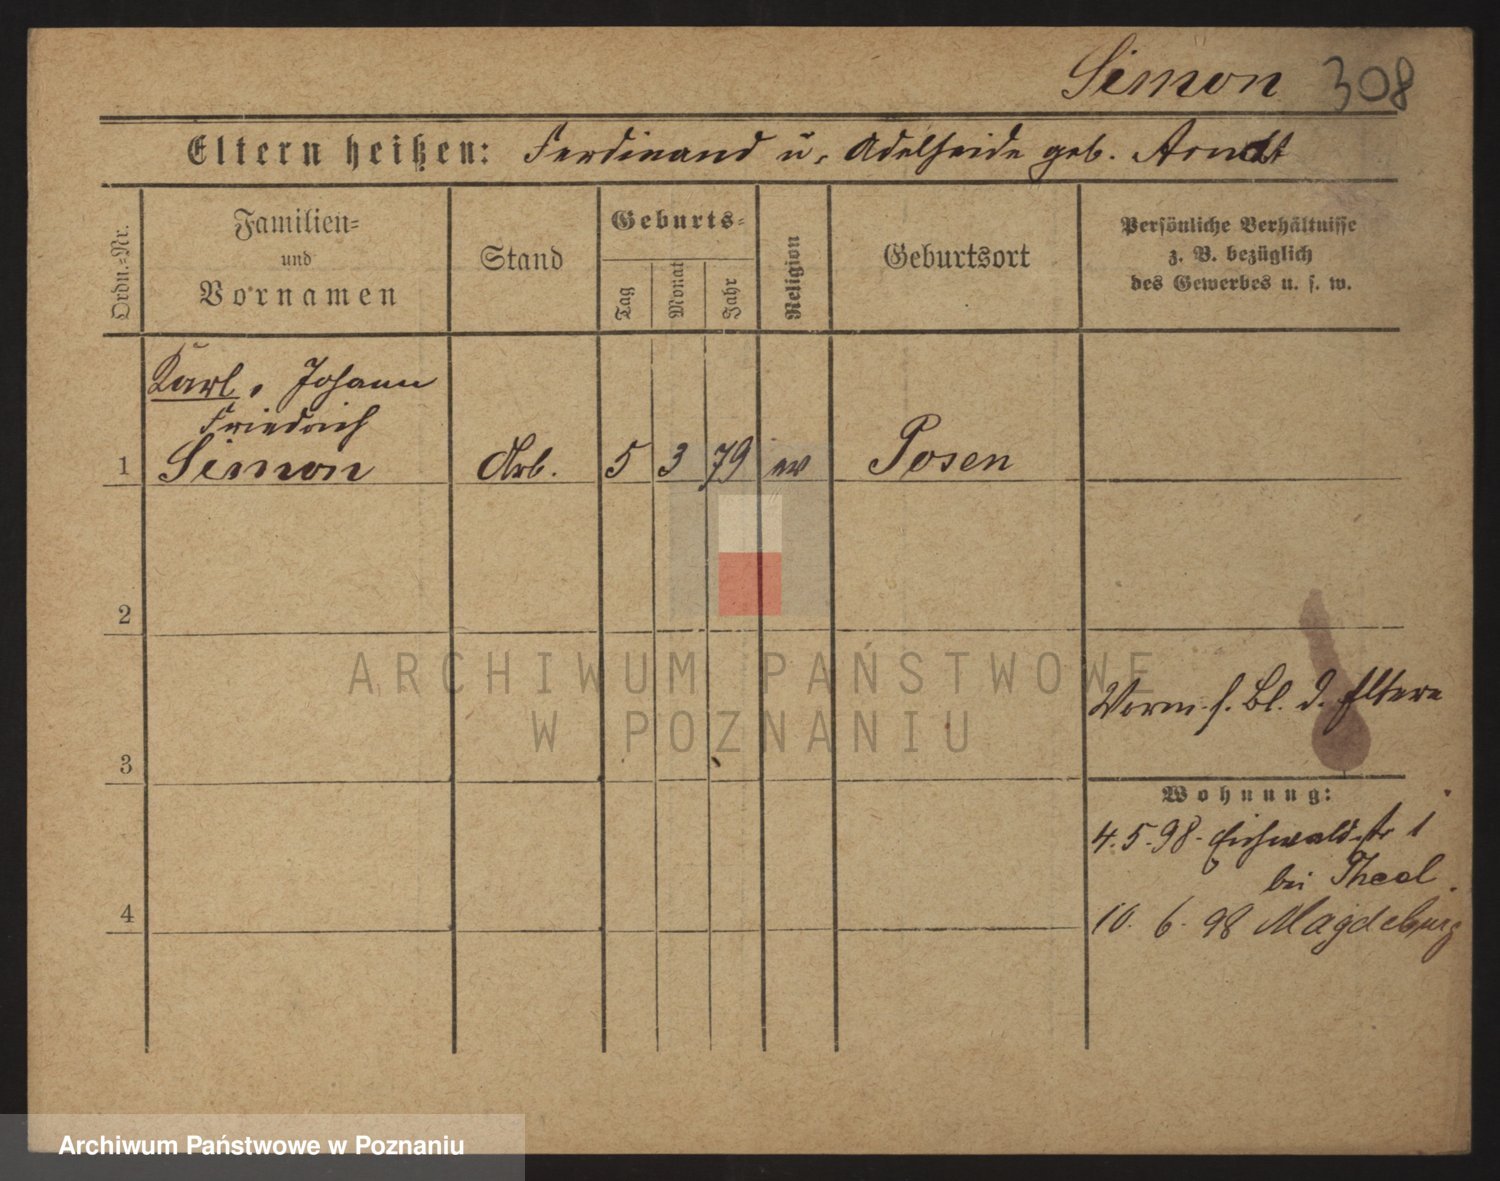 Simon 308
Eltern heißen: Ferdinand u. Adelheide geb. Arndt
Ordn.-Nr.
Familien-
und
Vornamen
Stand
Geburts-
Tag
Monat
Jahr
Religion
Geburtsort
Persönliche Verhältnisse
z. B. bezüglich
des Gewerbes u. s. w.
Karl, Johann
Friedrich
1 Simon Arb. 5 3 79 ev Posen
2
ARCHIWUM PAŃSTWOWE
W POZNANIU
Vorm. s. Bl. d. Eltern
3
Wohnung:
4.5.98. Eichwaldstr 1
bei Theol.
4
10. 6. 98 Magdeburg
Archiwum Państwowe w Poznaniu